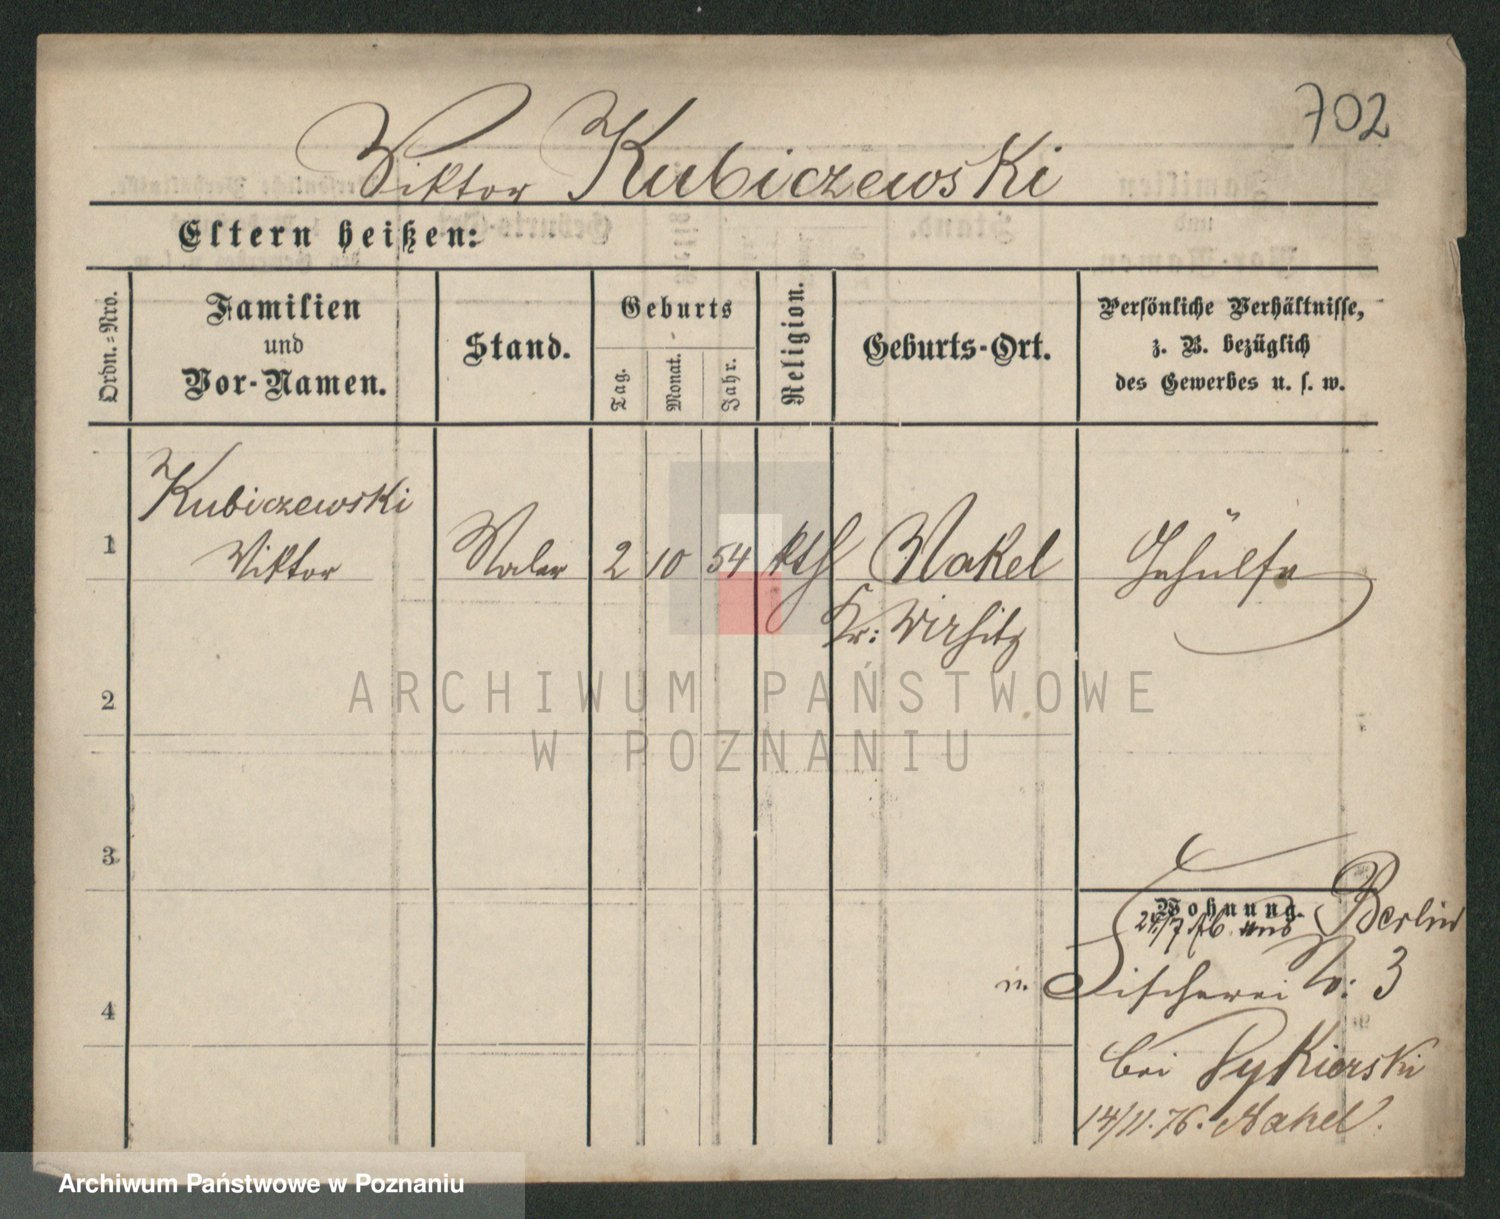 702
Viktor Kubiczewski
Eltern heißen:
Ordn.-Nro.
Familien
und
Vor-Namen.
Stand.
Geburts
Tag.
Monat.
Jahr.
Religion.
Geburts-Ort.
Persönliche Verhältnisse,
z. B. bezüglich
des Gewerbes u. s. w.
1
Kubiczewski
Viktor
Maler
2
10
54
kth
Nakel
Kr: Wirsitz
Gehülfe
2
3
4
Wohnung.
24/7 76 aus Berlin
n. Fischerei No: 3
bei Pykierski
14/11.76. Nakel.
ARCHIWUM PAŃSTWOWE
W POZNANIU
Archiwum Państwowe w Poznaniu